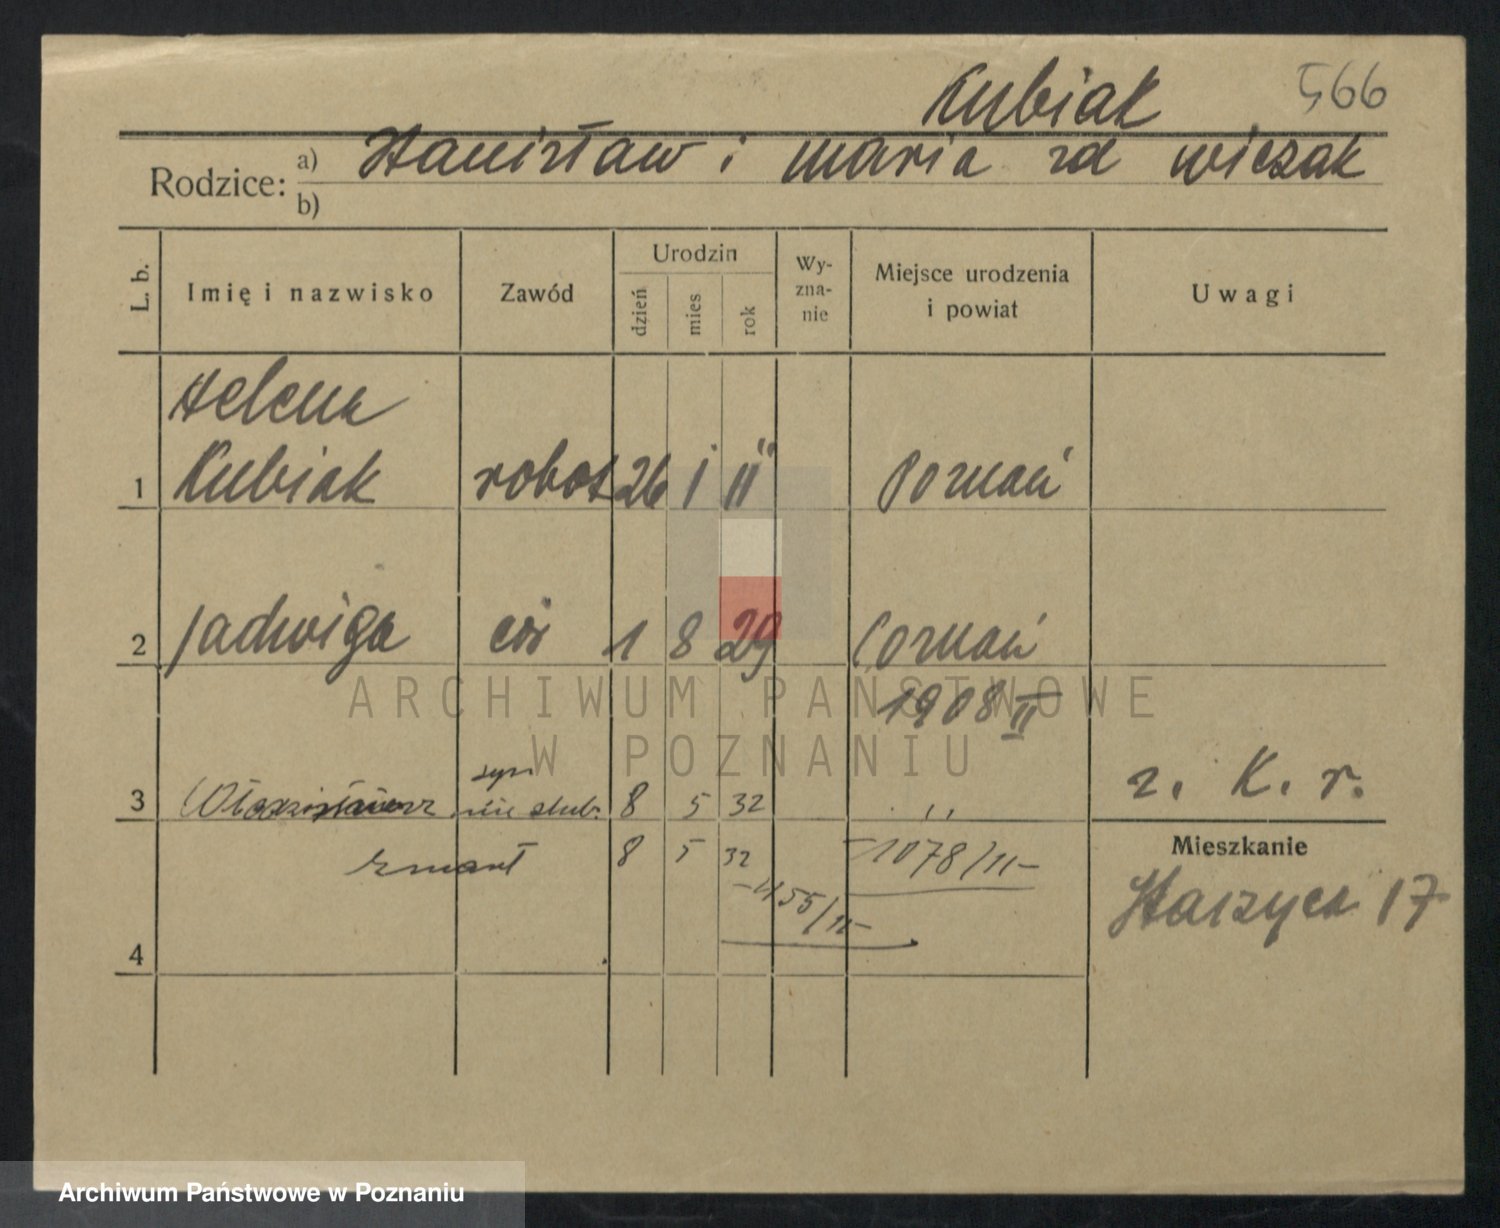 Kubiak 566
Rodzice: a) Stanisław i Maria zd Wiczak
b)
L. b. Imię i nazwisko Zawód Urodzin dzień mies rok Wy-zna-nie Miejsce urodzenia i powiat Uwagi
Helena
1 Kubiak robot 26 I 11 Poznań
2 Jadwiga 1 8 29 Poznań
1908 II
syn
3 nie ślub. 8 5 32 ,,
z. K. r.
zmarł 8 5 32 1078/11-
Mieszkanie
455/11-
17
4
ARCHIWUM PAŃSTWOWE
W POZNANIU
Archiwum Państwowe w Poznaniu